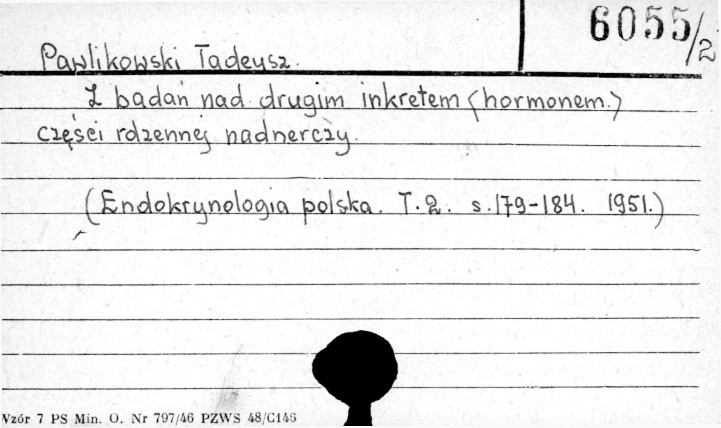 6055/2
Pawlikowski Tadeusz.
Z badań nad drugim inkretem (hormonem.)
części rdzennej nadnerczy.
(Endokrynologia polska. T.2. s.179-184. 1951.)
Vzór 7 PS Min. O. Nr 797/46 PZWS 48/C146